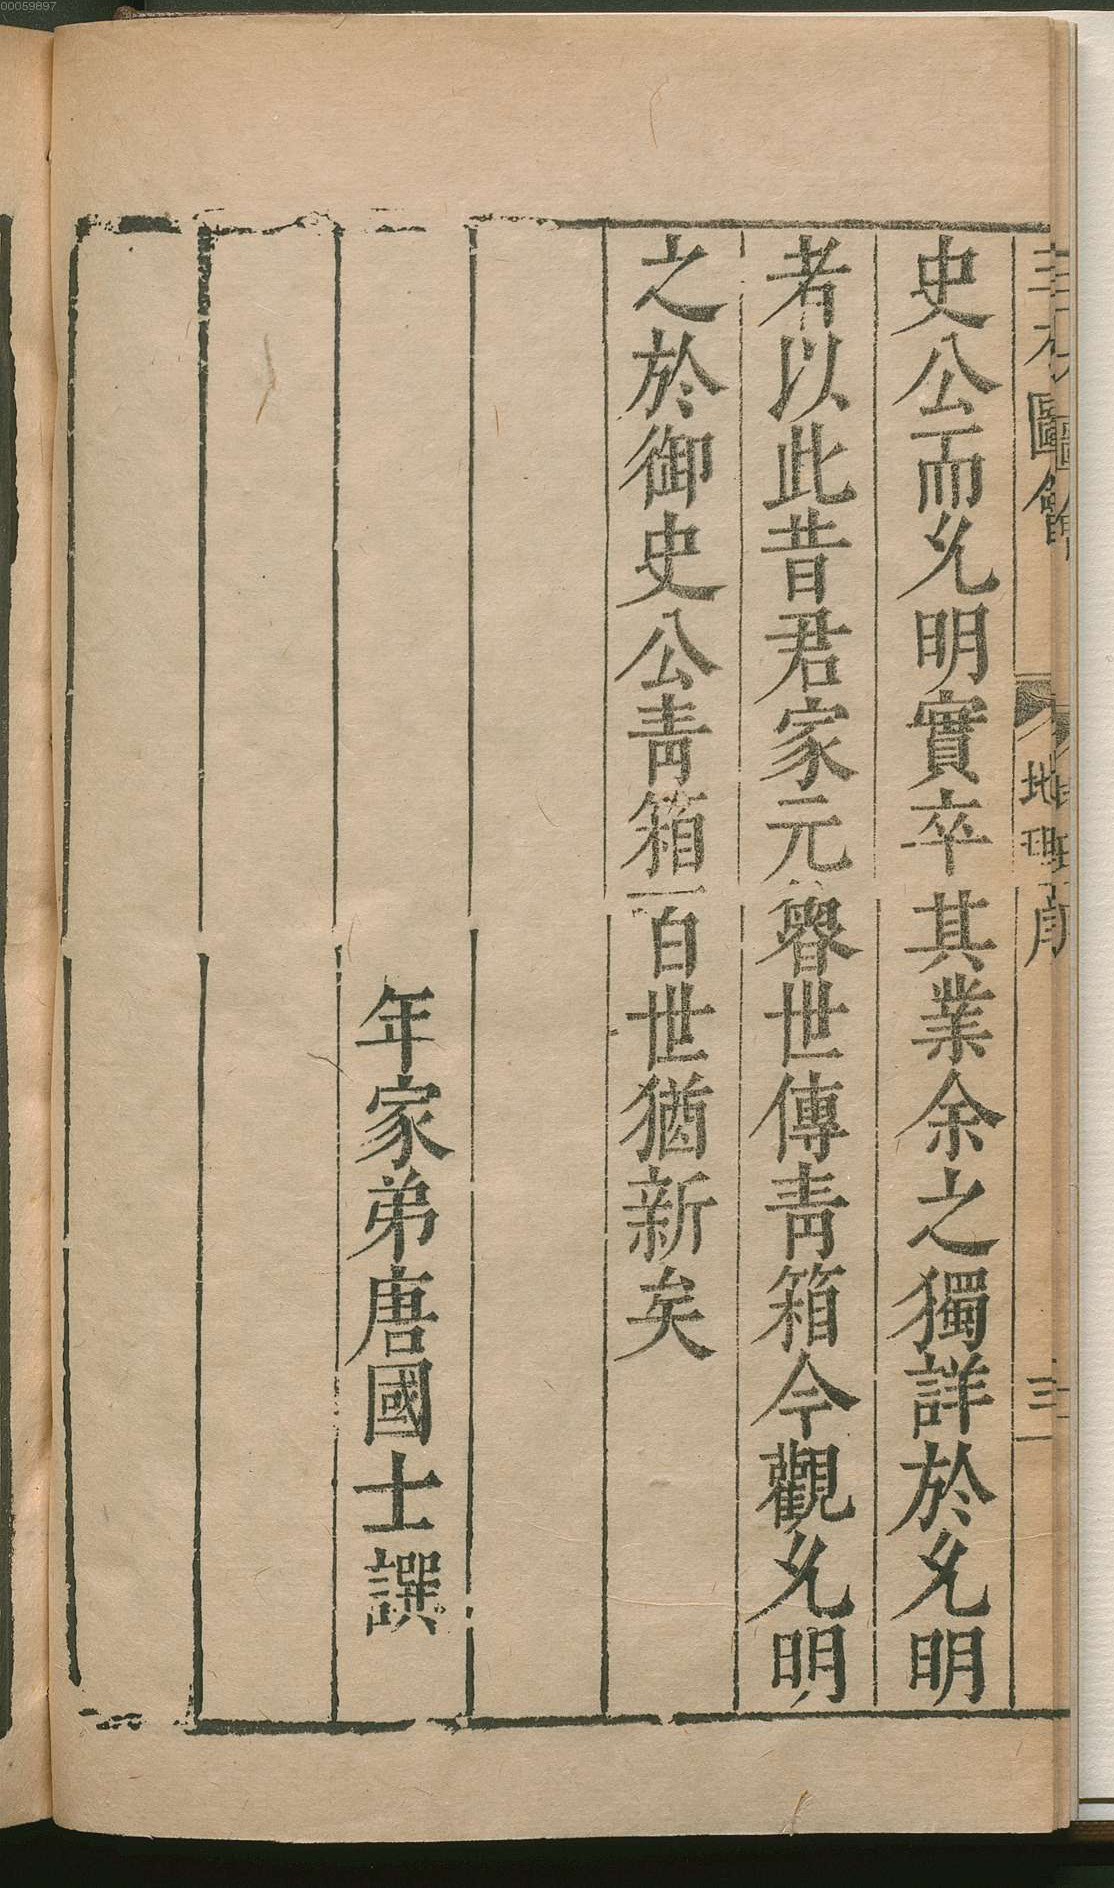 三才圖會 地理序 三
史公而允明實卒其業余之獨詳於允明
者以此昔君家元世傳青箱今觀允明
之於御史公青箱百世猶新矣
年家弟唐國士譔
00059897